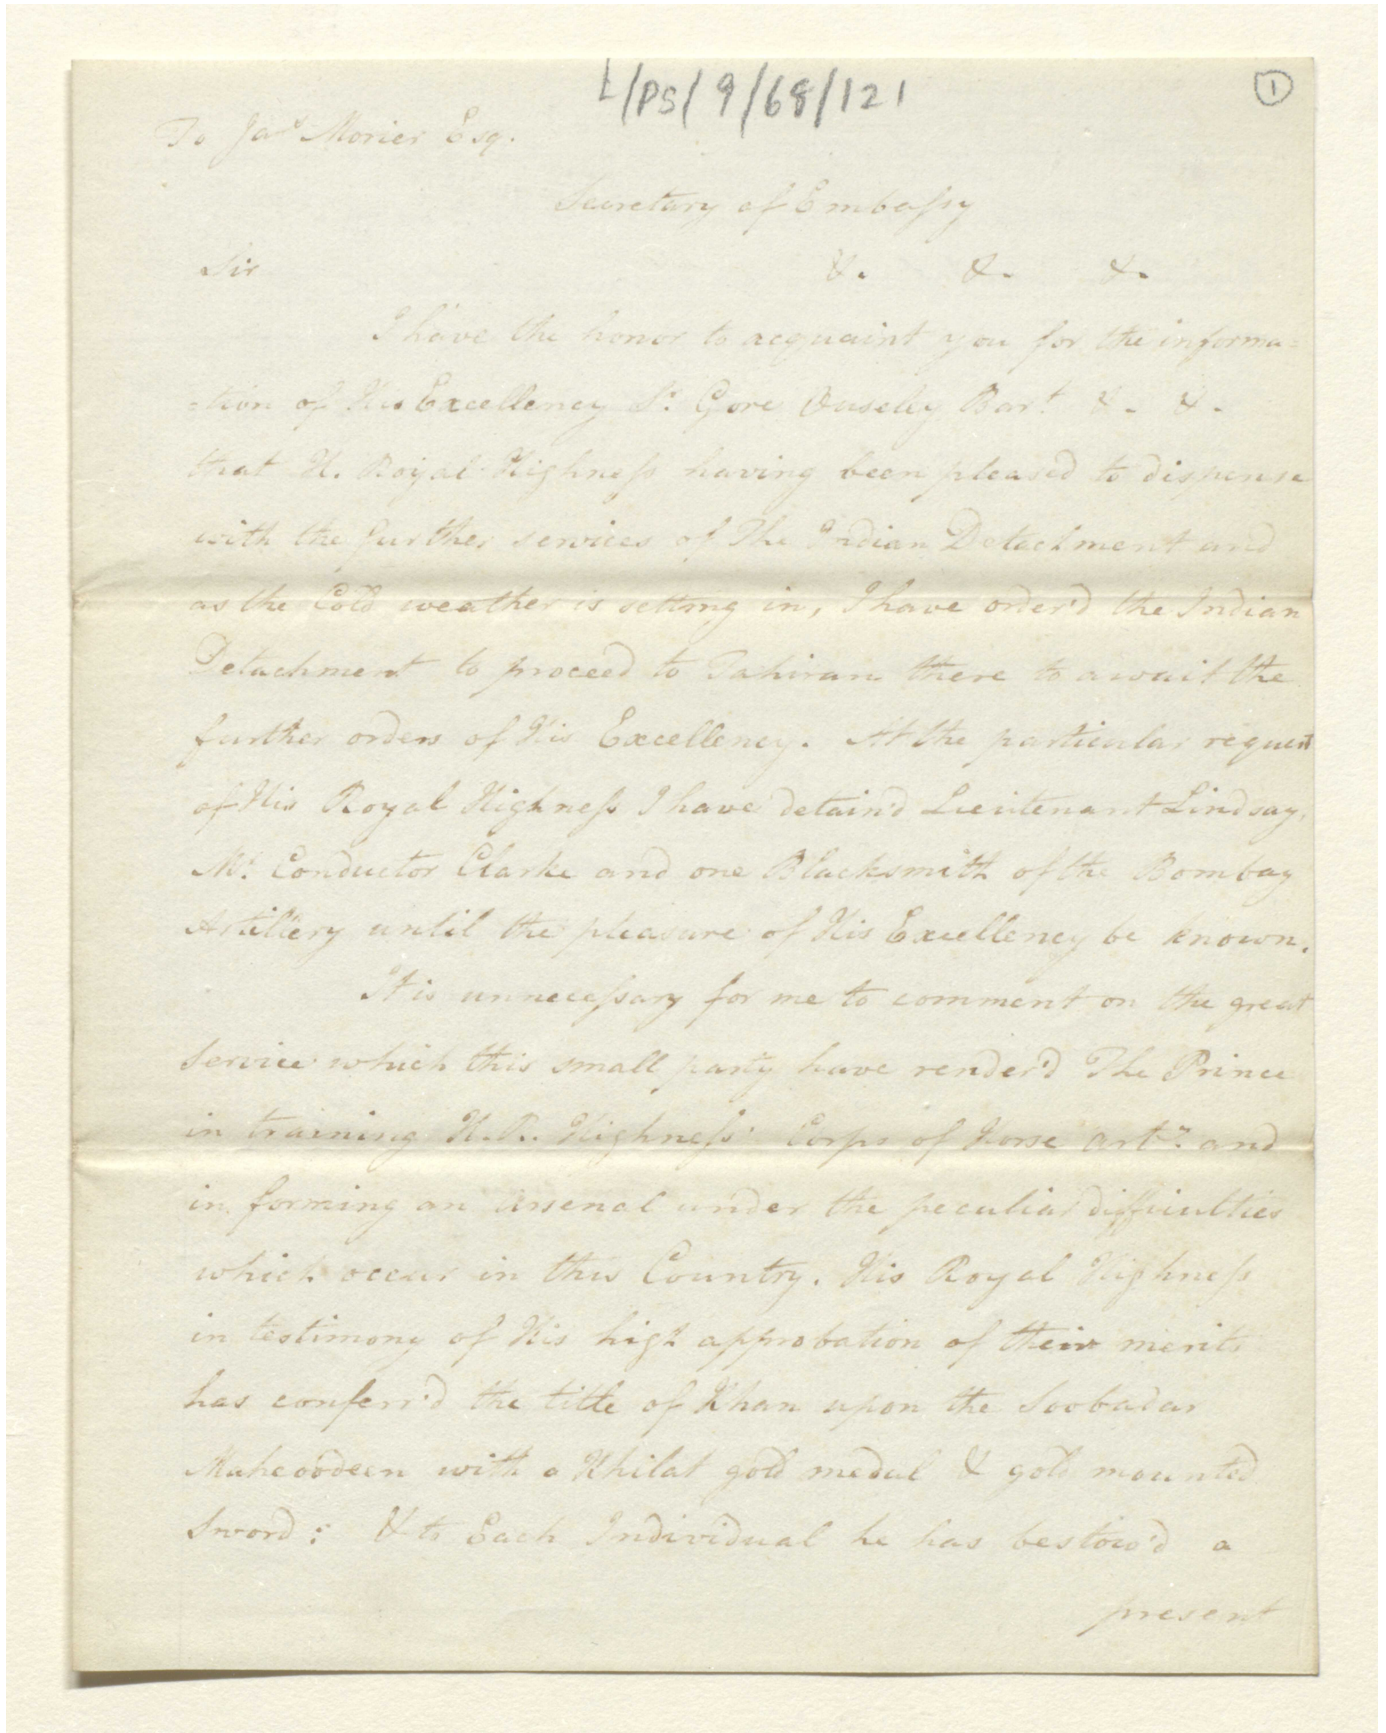 L/PS/9/68/121
1
To Jas Morier Esq.
Secretary of Embassy
Sir &. &. &.
I have the honor to acquaint you for the informa=
=tion of His Excellency Sr. Gore Ouseley Bart. &. &.
that H. Royal Highness having been pleased to dispense
with the further services of The Indian Detachment and
as the Cold weather is setting in, I have order'd the Indian
Detachment to proceed to Tahiran there to await the
further orders of His Excellency. At the particular request
of His Royal Highness I have detain'd Lieutenant Lindsay,
Mr. Conductor Clarke and one Blacksmith of the Bombay
Artillery until the pleasure of His Excellency be known.
It is unnecessary for me to comment on the great
Service which this small party have render'd The Prince
in training H.R. Highness' Corps of Horse Arty. and
in forming an Arsenal under the peculiar difficulties
which occur in this Country. His Royal Highness
in testimony of His high approbation of their merits
has conferr'd the title of Khan upon the Soobadar
Muheoodeen with a Khilat gold medal & gold mounted
Sword: & to Each Individual he has bestow'd a
present